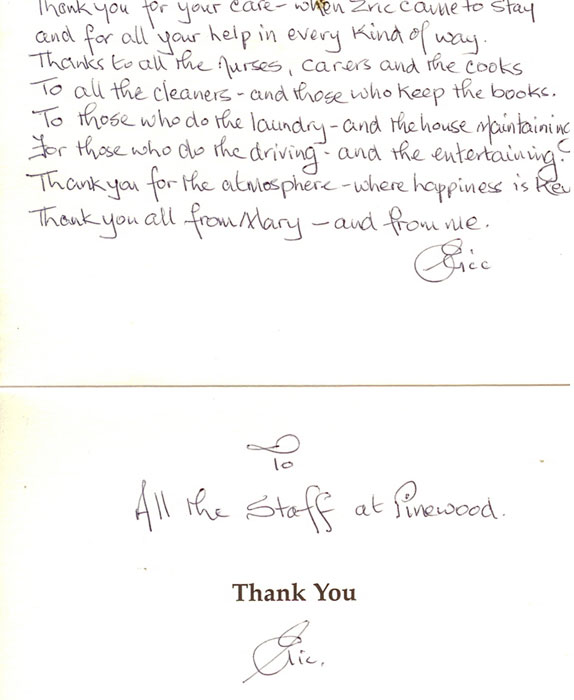 Thank you for your care - when Eric came to stay
and for all your help in every kind of way.
Thanks to all the Nurses, carers and the cooks
To all the cleaners - and those who keep the books.
To those who do the laundry - and the house maintaining
For those who do the driving - and the entertaining.
Thank you for the atmosphere - where happiness is Key
Thank you all from Mary - and from me.
Eric
To
All the Staff at Pinewood.
Thank You
Eric.